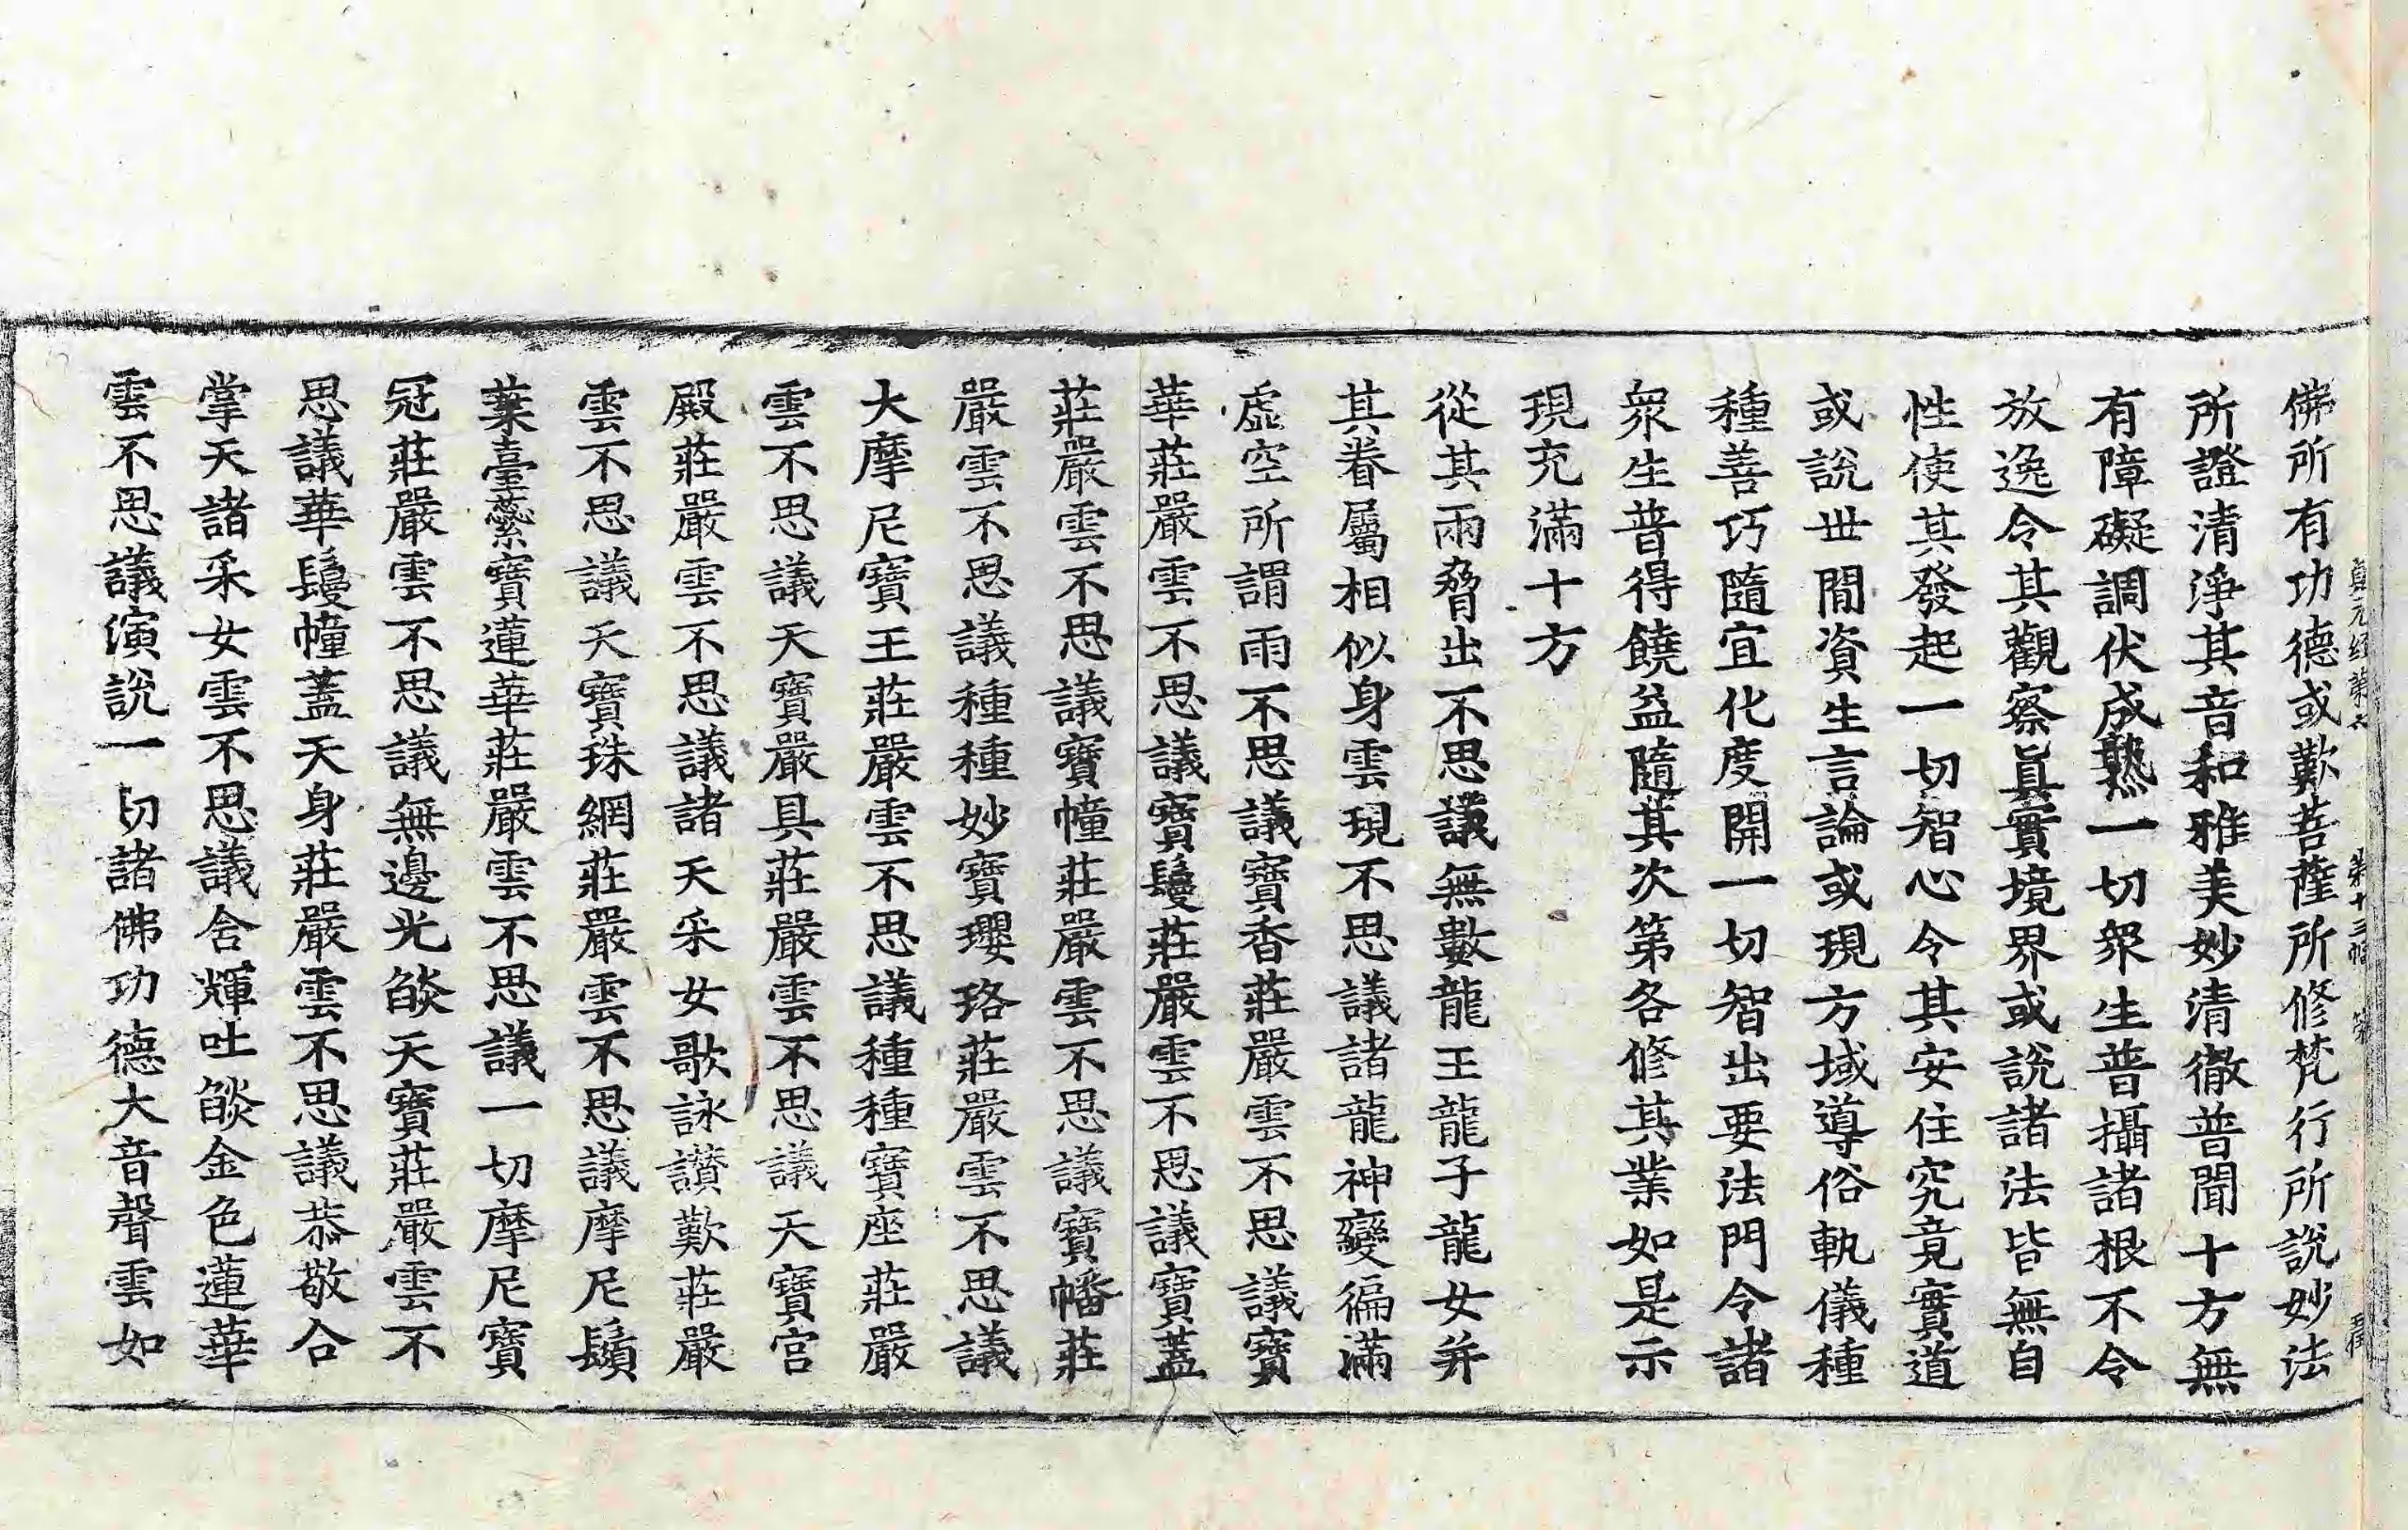 佛所有功德或歎菩薩所修梵行所說妙法
所證清淨其音和雅美妙清徹普聞十方無
有障礙調伏成熟一切衆生普攝諸根不令
放逸令其觀察眞實境界或說諸法皆無自
性使其發起一切智心令其安住究竟實道
或說世間資生言論或現方域導俗軌儀種
種善巧隨宜化度開一切智出要法門令諸
衆生普得饒益隨其次第各修其業如是示
現充滿十方
從其兩脅出不思議無數龍王龍子龍女并
其眷屬相似身雲現不思議諸龍神變徧滿
虛空所謂雨不思議寶香莊嚴雲不思議寶
華莊嚴雲不思議寶鬘莊嚴雲不思議寶蓋
莊嚴雲不思議寶幢莊嚴雲不思議寶幡莊
嚴雲不思議種種妙寶瓔珞莊嚴雲不思議
大摩尼寶王莊嚴雲不思議種種寶座莊嚴
雲不思議天寶嚴具莊嚴雲不思議天寶宮
殿莊嚴雲不思議諸天采女歌詠讚歎莊嚴
雲不思議天寶珠網莊嚴雲不思議摩尼鬚
葉臺蘂寶蓮華莊嚴雲不思議一切摩尼寶
冠莊嚴雲不思議無邊光燄天寶莊嚴雲不
思議華鬘幢蓋天身莊嚴雲不思議恭敬合
掌天諸采女雲不思議含輝吐燄金色蓮華
雲不思議演說一切諸佛功德大音聲雲如